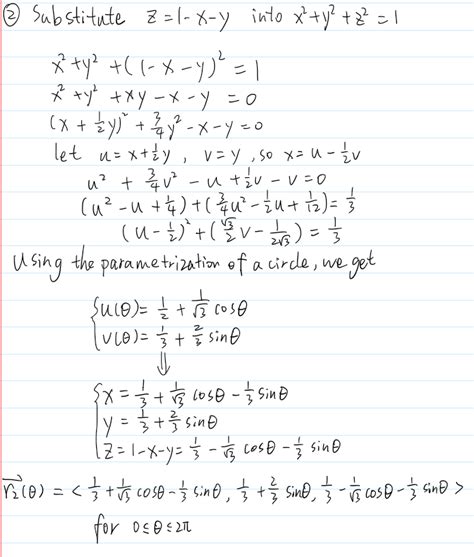 ② Substitute z=1-x-y into x²+y²+z²=1
x²+y²+(1-x-y)²=1
x²+y²+xy-x-y=0
(x+½y)²+¾y²-x-y=0
let u=x+½y, v=y, so x=u-½v
u²+¾v²-u+½v-v=0
(u²-u+¼)+(¾u²-½u+1/12)=⅓
(u-½)²+(√3/2 v-1/(2√3))=⅓
Using the parametrization of a circle, we get
{u(θ)=½+1/√3 cosθ
{v(θ)=⅓+⅔ sinθ
⇓
{x=⅓+1/√3 cosθ-⅓ sinθ
{y=⅓+⅔ sinθ
{z=1-x-y=⅓-1/√3 cosθ-⅓ sinθ
r⃗₂(θ)=<⅓+1/√3 cosθ-⅓ sinθ, ⅓+⅔ sinθ, ⅓-1/√3 cosθ-⅓ sinθ>
for 0≤θ≤2π